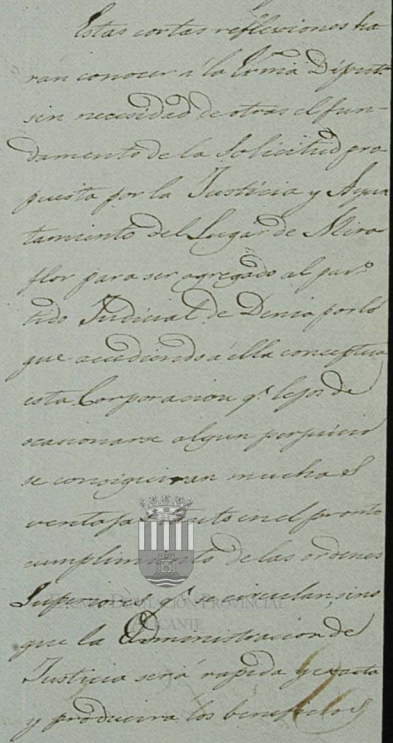 Estas cortas reflexiones ha
ran conocer á la Exma Diput
sin necesidad de otras el fun-
damento de la Solicitud pro
puesta por la Justicia y Ayun
tamiento del Lugar de Mira
flor para ser agregado al par
tido Judicial de Denia por lo
que accediendo á ella conceptua
esta Corporacion q.e lejos de
ocasionarse algun perjuicio
se conseguiran muchas
ventajas tanto en el pronto
cumplimiento de las ordenes
Superiores q.e se circulan, sino
que la Administracion de
Justicia será rapida y exacta
y producira los beneficios
DIPUTACIÓN PROVINCIAL
ALICANTE